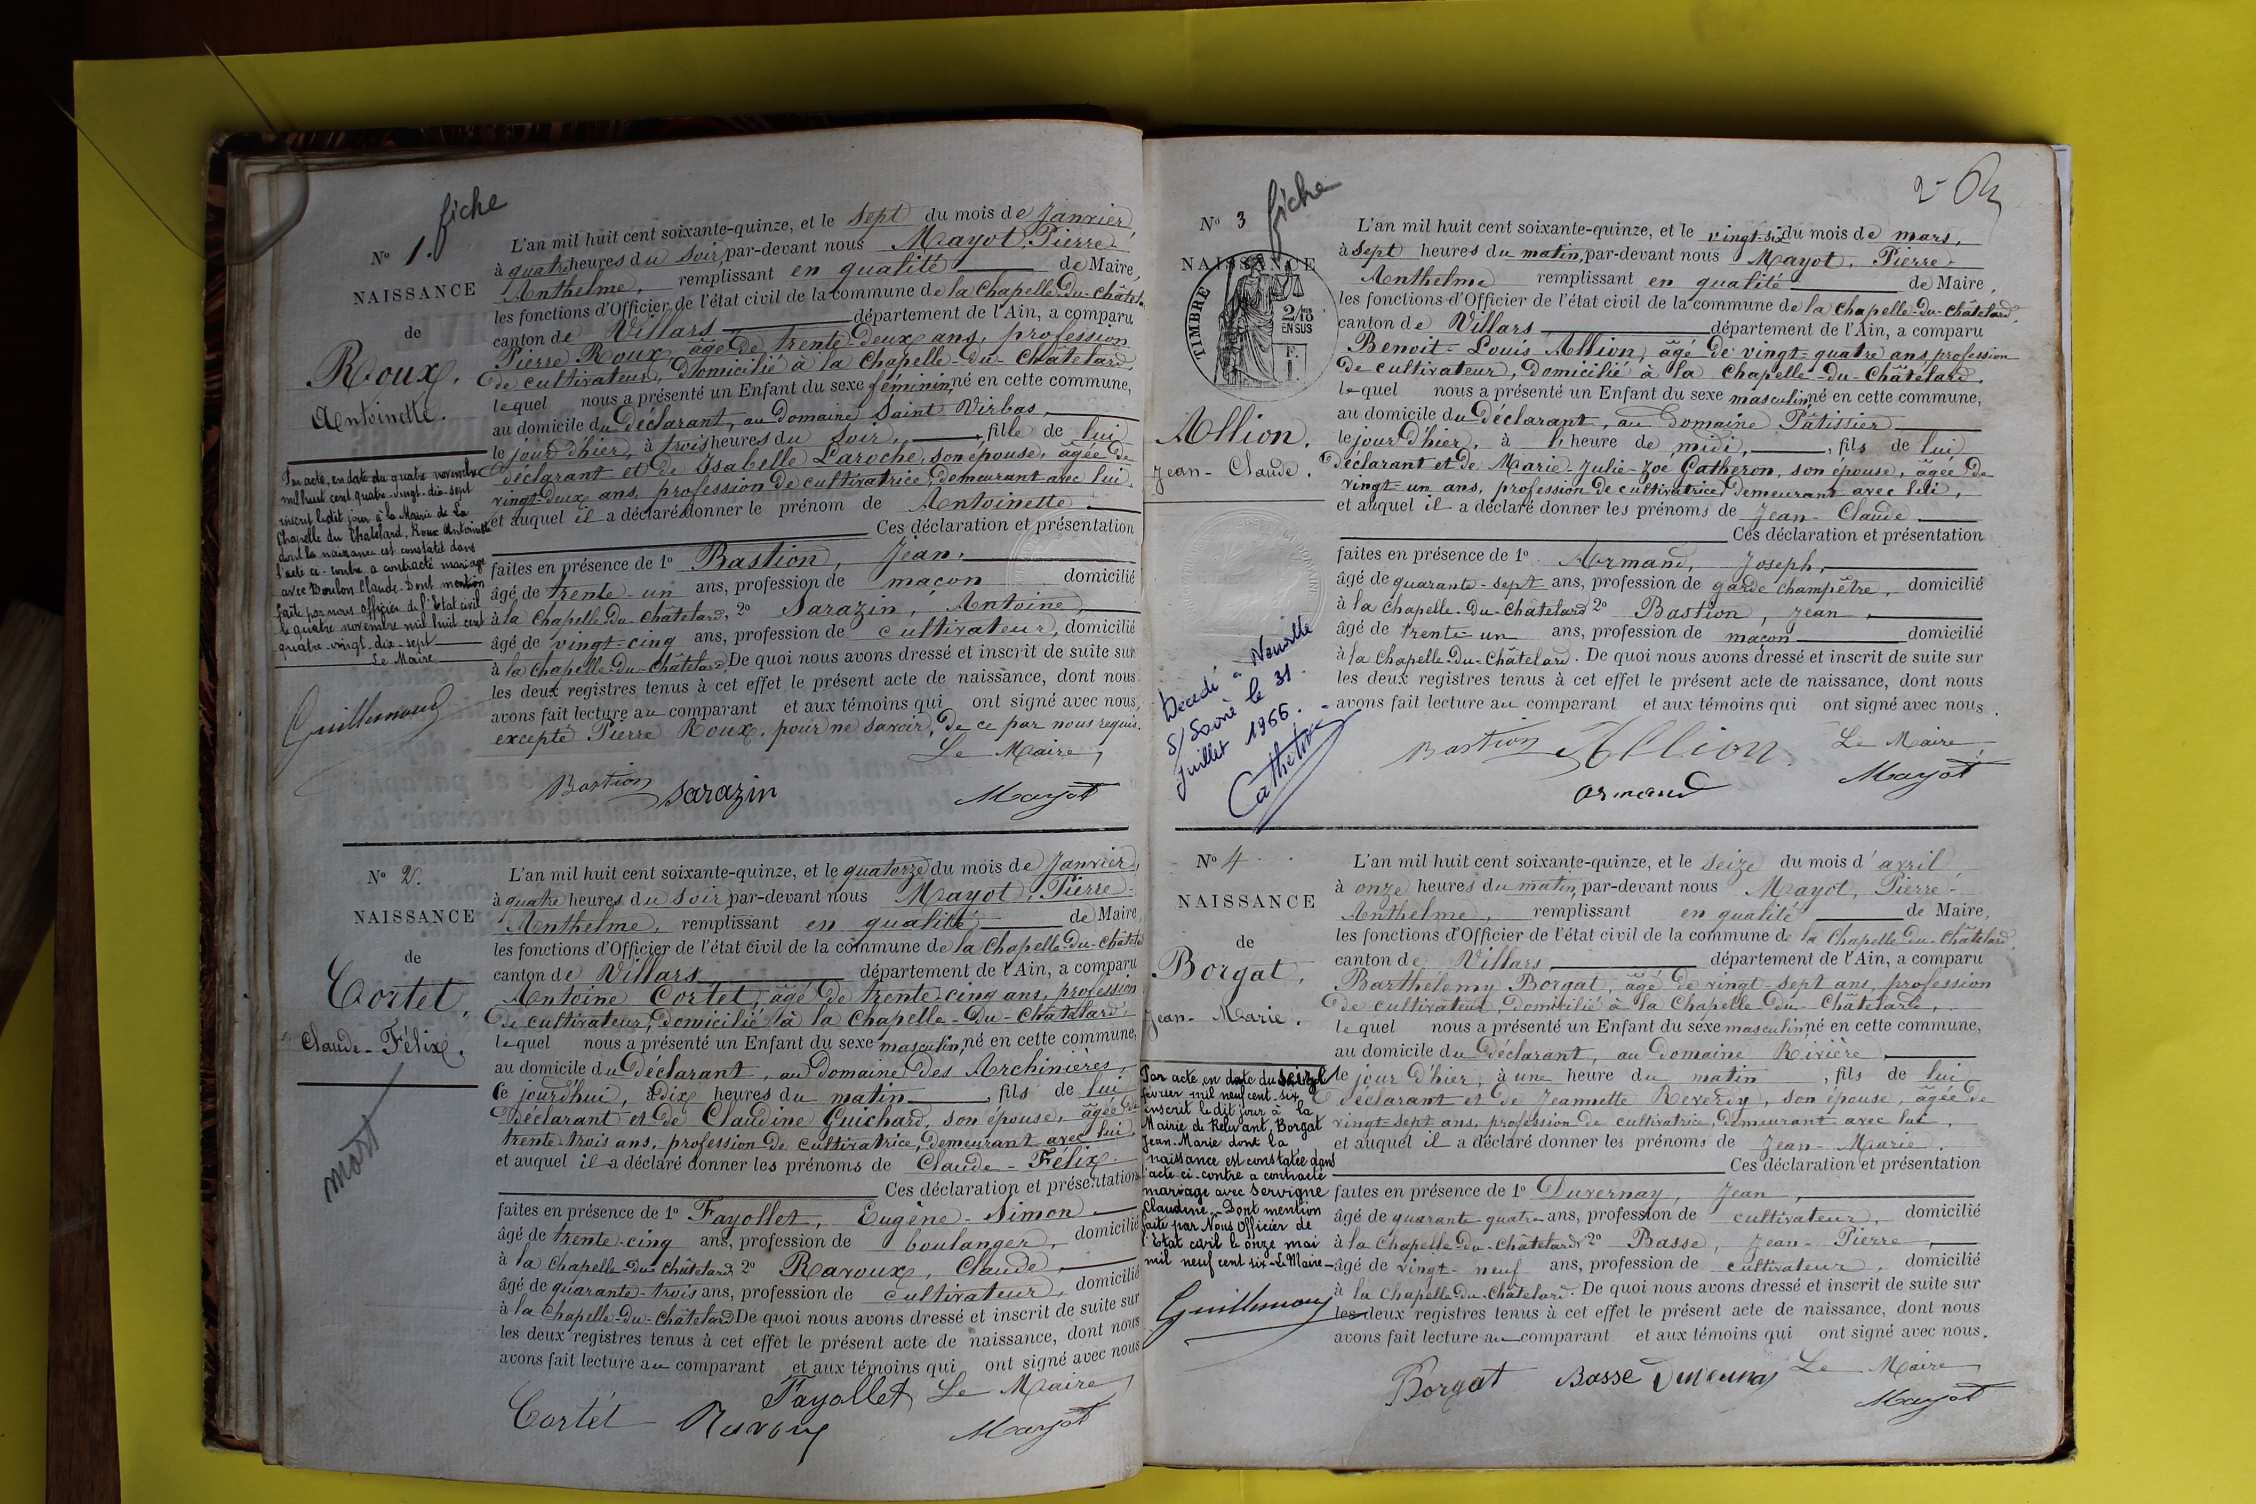 fiche
N° 1.
NAISSANCE
de
Roux,
Antoinette.
Par acte, en date du quatre novembre
mil huit cent quatre-vingt-dix-sept
inscrit ledit jour à la Mairie de La
Chapelle du Chatelard, Roux Antoinette
dont la naissance est constatée dans
l'acte ci-contre a contracté mariage
avec Boulon Claude. Dont mention
faite par nous Officier de l'Etat civil
le quatre novembre mil huit cent
quatre-vingt-dix-sept
Le Maire
Guillemoud
L'an mil huit cent soixante-quinze, et le sept du mois de Janvier,
à quatre heures du soir, par-devant nous Mayot, Pierre
Anthelme, remplissant en qualité de Maire,
les fonctions d'Officier de l'état civil de la commune de la Chapelle-du-Châtela
canton de Villars département de l'Ain, a comparu
Pierre Roux, âgé de trente-deux ans, profession
de cultivateur, domicilié à la Chapelle-du-Châtelard,
lequel nous a présenté un Enfant du sexe féminin, né en cette commune,
au domicile du déclarant, au domaine Saint Virbas,
le jour d'hier, à trois heures du soir, fille de lui
déclarant et de Isabelle Laroche, son épouse, âgée de
vingt-deux ans, profession de cultivatrice, demeurant avec lui,
et auquel il a déclaré donner le prénom de Antoinette
Ces déclaration et présentation
faites en présence de 1° Bastion, Jean,
âgé de trente-un ans, profession de maçon domicilié
à la Chapelle-du-Châtelard, 2° Sarazin, Antoine,
âgé de vingt-cinq ans, profession de cultivateur, domicilié
à la Chapelle-du-Châtelard De quoi nous avons dressé et inscrit de suite sur
les deux registres tenus à cet effet le présent acte de naissance, dont nous
avons fait lecture au comparant et aux témoins qui ont signé avec nous,
excepté Pierre Roux, pour ne savoir, de ce par nous requis.
Le Maire,
Bastion Sarazin Mayot
N° 2.
NAISSANCE
de
Cortet,
Claude-Félix.
mort
L'an mil huit cent soixante-quinze, et le quatorze du mois de Janvier,
à quatre heures du soir, par-devant nous Mayot, Pierre
Anthelme, remplissant en qualité de Maire,
les fonctions d'Officier de l'état civil de la commune de la Chapelle-du-Châtela
canton de Villars département de l'Ain, a comparu
Antoine Cortet, âgé de trente-cinq ans, profession
de cultivateur, domicilié à la Chapelle-du-Châtelard
lequel nous a présenté un Enfant du sexe masculin, né en cette commune,
au domicile du déclarant, au domaine des Archinières,
ce jourd'hui, à dix heures du matin, fils de lui
déclarant et de Claudine Guichard, son épouse, âgée de
trente trois ans, profession de cultivatrice, demeurant avec lui,
et auquel il a déclaré donner les prénoms de Claude-Félix.
Ces déclaration et présentation
faites en présence de 1° Fayollet, Eugène-Simon
âgé de trente-cinq ans, profession de boulanger, domicilié
à la Chapelle-du-Châtelard 2° Ravoux, Claude,
âgé de quarante-trois ans, profession de cultivateur, domicilié
à la Chapelle-du-Châtelard De quoi nous avons dressé et inscrit de suite sur
les deux registres tenus à cet effet le présent acte de naissance, dont nous
avons fait lecture au comparant et aux témoins qui ont signé avec nous
Fayollet Le Maire,
Cortet Ravoux Mayot
2
N° 3
fiche
NAISSANCE
TIMBRE
2/10
EN SUS
F.
1
Allion,
Jean-Claude.
Décédé à Neuville
S/Saône le 31
Juillet 1966.
L'an mil huit cent soixante-quinze, et le vingt-six du mois de mars,
à sept heures du matin, par-devant nous Mayot, Pierre
Anthelme remplissant en qualité de Maire,
les fonctions d'Officier de l'état civil de la commune de la Chapelle-du-Châtelard,
canton de Villars département de l'Ain, a comparu
Benoit-Louis Allion, âgé de vingt-quatre ans, profession
de cultivateur, domicilié à la Chapelle-du-Châtelard,
lequel nous a présenté un Enfant du sexe masculin, né en cette commune,
au domicile du déclarant, au domaine Pâtissier
le jour d'hier, à l'heure de midi, fils de lui
déclarant et de Marie-Julie-Zoé Catheron, son épouse, âgée de
vingt-un ans, profession de cultivatrice, demeurant avec lui,
et auquel il a déclaré donner les prénoms de Jean-Claude
Ces déclaration et présentation
faites en présence de 1° Armand, Joseph,
âgé de quarante-sept ans, profession de garde champêtre, domicilié
à la Chapelle-du-Châtelard 2° Bastion, Jean,
âgé de trente-un ans, profession de maçon domicilié
à la Chapelle-du-Châtelard. De quoi nous avons dressé et inscrit de suite sur
les deux registres tenus à cet effet le présent acte de naissance, dont nous
avons fait lecture au comparant et aux témoins qui ont signé avec nous.
Bastion Allion Le Maire,
Armand Mayot
N° 4
NAISSANCE
de
Borgat,
Jean-Marie.
Par acte, en date du seize
février mil neuf cent six
inscrit le dit jour à la
Mairie de Relevant, Borgat
Jean-Marie dont la
naissance est constatée dans
l'acte ci-contre a contracté
mariage avec Servigne
Claudine. Dont mention
faite par Nous Officier de
l'Etat civil le onze mai
mil neuf cent six. Le Maire
Guillemoud
L'an mil huit cent soixante-quinze, et le seize du mois d'avril
à onze heures du matin, par-devant nous Mayot, Pierre
Anthelme, remplissant en qualité de Maire,
les fonctions d'Officier de l'état civil de la commune de la Chapelle-du-Châtelard,
canton de Villars, département de l'Ain, a comparu
Barthélemy Borgat, âgé de vingt-sept ans, profession
de cultivateur, domicilié à la Chapelle-du-Châtelard,
lequel nous a présenté un Enfant du sexe masculin né en cette commune,
au domicile du déclarant, au domaine Rivière,
le jour d'hier, à une heure du matin, fils de lui
déclarant et de Jeannette Reverdy, son épouse, âgée de
vingt sept ans, profession de cultivatrice, demeurant avec lui,
et auquel il a déclaré donner les prénoms de Jean-Marie.
Ces déclaration et présentation
faites en présence de 1° Duvernay, Jean,
âgé de quarante quatre ans, profession de cultivateur, domicilié
à la Chapelle-du-Châtelard 2° Basse, Jean-Pierre,
âgé de vingt-neuf ans, profession de cultivateur, domicilié
à la Chapelle-du-Châtelard. De quoi nous avons dressé et inscrit de suite sur
les deux registres tenus à cet effet le présent acte de naissance, dont nous
avons fait lecture au comparant et aux témoins qui ont signé avec nous.
Borgat Basse Duvernay Le Maire
Mayot